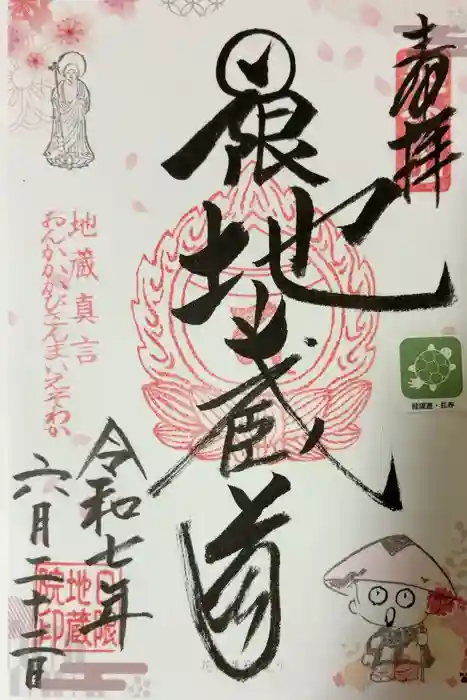 奉拝
日限地蔵尊
地蔵真言
おんかかかびさんまいえそわか
令和七年
六月二十二日
日限
地蔵
院印
健康運・長寿